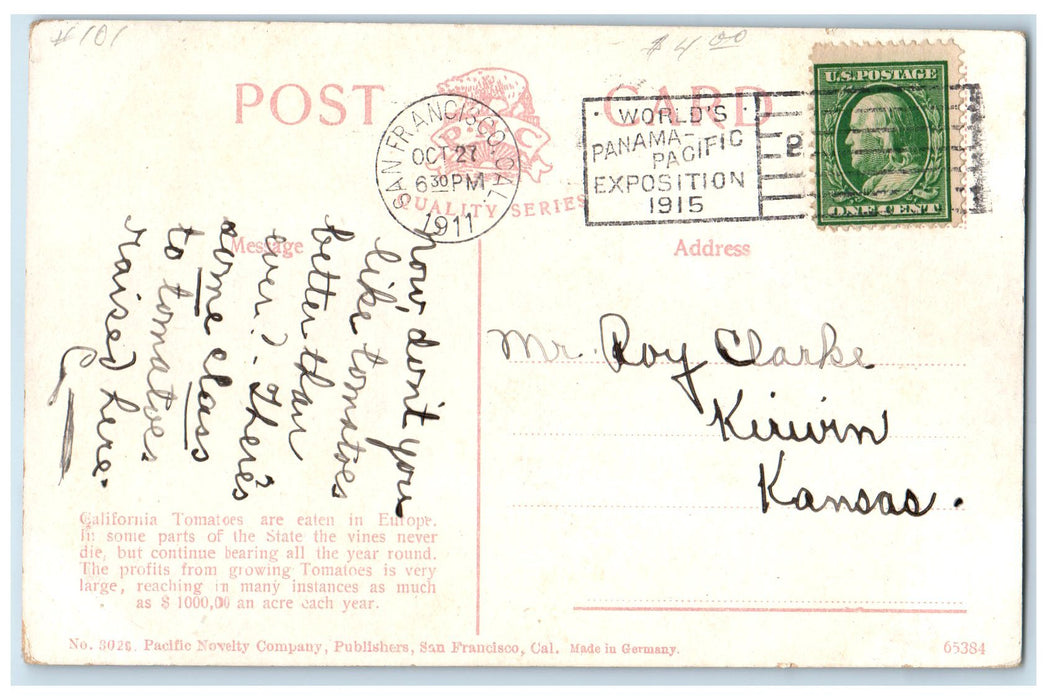 #101
$4.00
POST CARD
P.N.C.
QUALITY SERIES
SAN FRANCISCO, CAL.
OCT 27
6 30 PM
1911
WORLD'S
PANAMA-
PACIFIC
EXPOSITION
1915
2
U.S. POSTAGE
ONE CENT
Message
Address
Now don't you
like tomatoes
better than
ever? There's
some class
to tomatoes
raised here.
G
Mr. Roy Clarke
Kirwin
Kansas.
California Tomatoes are eaten in Europe.
In some parts of the State the vines never
die, but continue bearing all the year round.
The profits from growing Tomatoes is very
large, reaching in many instances as much
as $ 1000,00 an acre each year.
No. 3026. Pacific Novelty Company, Publishers, San Francisco, Cal. Made in Germany.
65384